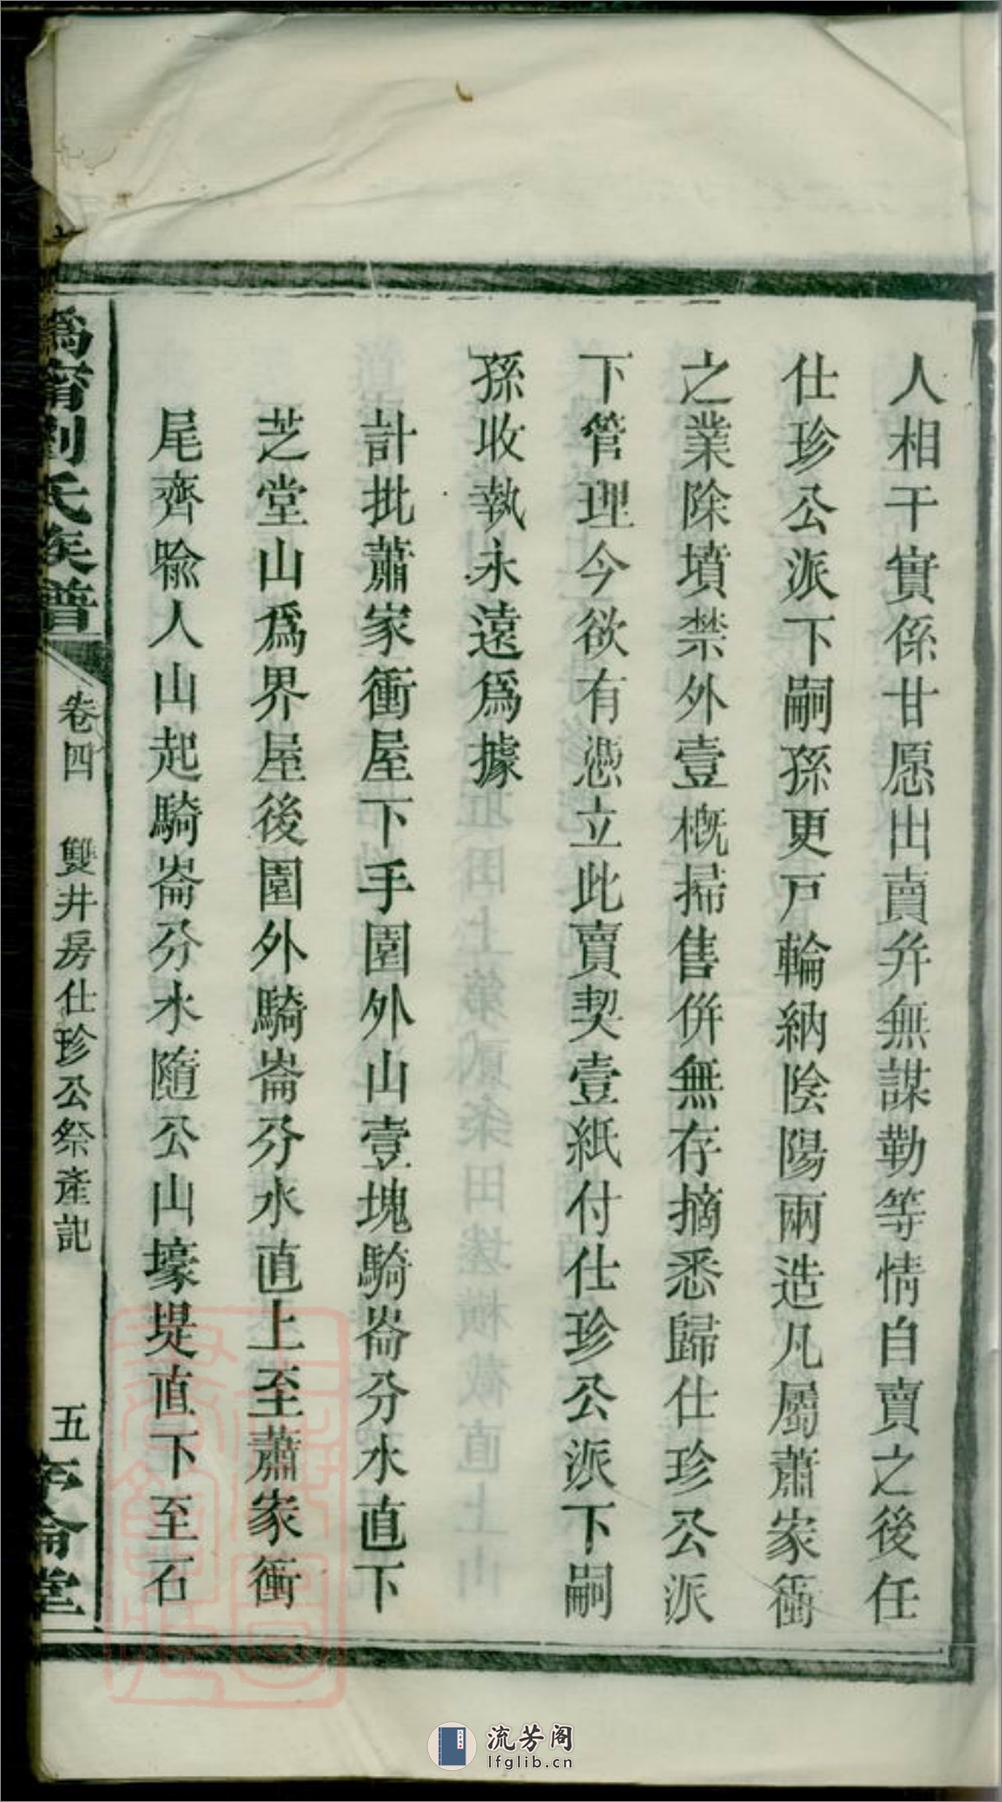 人相干實係甘愿出賣幷無謀勒等情自賣之後任
仕珍公派下嗣孫更戸輪納陰陽兩造凡屬蕭家衝
之業除墳禁外壹槪掃售併無存摘悉歸仕珍公派
下管理今欲有憑立此賣契壹紙付仕珍公派下嗣
孫收執永遠爲據
計批蕭家衝屋下手園外山壹塊騎崙分水直下
芝堂山爲界屋後園外騎崙分水直上至蕭家衝
尾齊睮人山起騎崙分水隨公山壕堤直下至石
劉氏族譜
卷四
雙井房仕珍公祭產記
五
倫堂
流芳阁
lfglib.cn